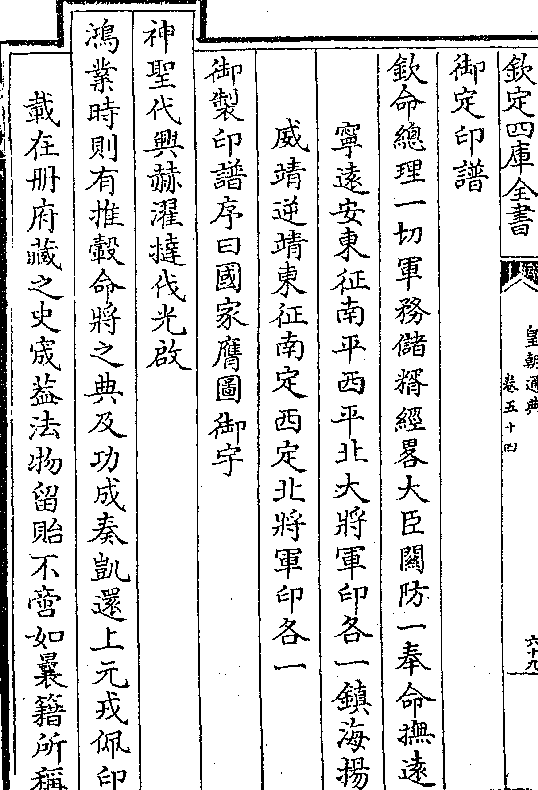 欽定四庫全書
皇朝通典
卷五十四
六十九
御定印譜
欽命總理一切軍務儲糈經畧大臣關防一奉命撫逺
寧逺安東征南平西平北大將軍印各一鎮海揚
威靖逆靖東征南定西定北將軍印各一
御製印譜序曰國家膺圖御宇
神聖代興赫濯撻伐光啟
鴻業時則有推轂命將之典及功成奏凱還上元戎佩印
載在冊府藏之史宬葢法物留貽不啻如曩籍所稱